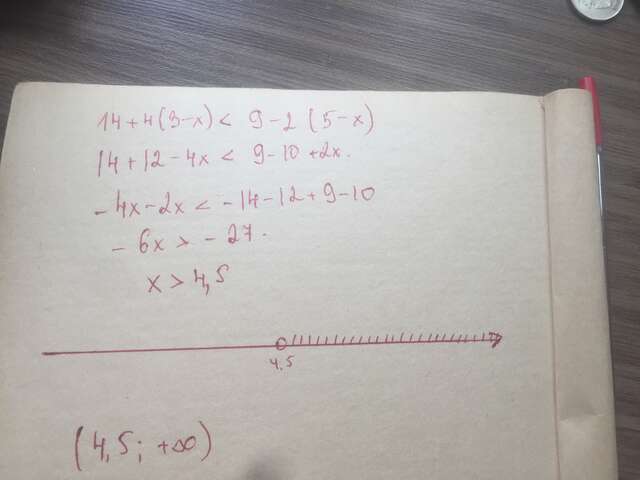 14+4(3-x)< 9-2(5-x)
14+12-4x< 9-10+2x.
-4x-2x<-14-12+9-10
-6x>-27.
x>4,5
4,5
(4,5; +∞)